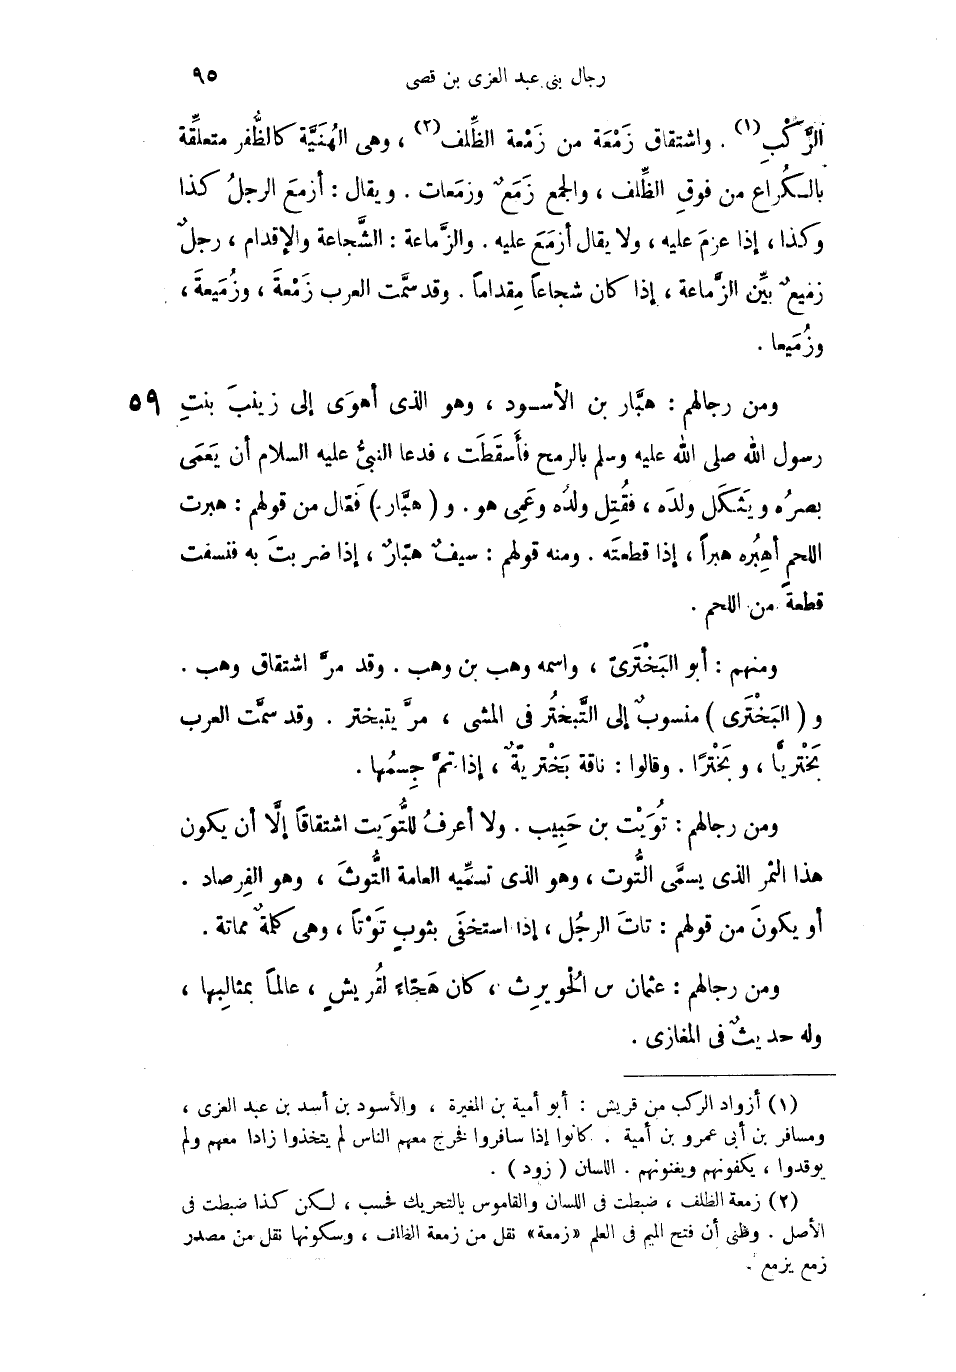 رجال بنى عبد العزى بن قصى ٩٥
الرَّكْبِ(١) . واشتقاق زَمْعَة من زَمْعة الظِّلف(٢) ، وهى الهُنَيَّة كالظُّفر متعلقِّة
بالـكُراع من فوقِ الظِّلف ، والجمع زَمَعٌ وزمَعات . ويقال : أزمَعَ الرجلُ كذا
وكذا ، إذا عزمَ عليه ، ولا يقال أزمَعَ عليه . والزَّماعة : الشَّجاعة والإقدام ، رجلٌ
زميعٌ بيِّن الزَّماعة ، إذا كان شجاعاً مِقداماً . وقد سمَّت العرب زَمْعةَ ، وزُمَيعةَ ،
وزُمَيعا .
ومن رجالهم : هبَّار بن الأسـود ، وهو الذى أهوَى إلى زينبَ بنتِ ٥٩
رسول الله صلى الله عليه وسلم بالرمح فأَسقَطَت ، فدعا النبىُّ عليه السلام أن يَعمَى
بصرُه ويَثـكَل ولدَه ، فقُتِل ولدُه وعَمِى هو . و ( هبَّار ) فَعّال من قولهم : هبرت
اللحم أهبُره هبراً ، إذا قطعتَه . ومنه قولهم : سيفٌ هبّارٌ ، إذا ضربتَ به فنسفت
قطعةً من اللحم .
ومنهم : أبو البَخْتَرىّ ، واسمه وهب بن وهب . وقد مرَّ اشتقاق وهب .
و ( البَخْتَرى ) منسوبٌ إلى التَّبختُر فى المشى ، مرَّ يتبختر . وقد سمَّت العرب
بَخْتَريًّا ، وبَخْتَرًا . وقالوا : ناقة بَخْتَريّةٌ ، إذا تمَّ جِسمُها .
ومن رجالهم : تُوَيْت بن حَبِيب . ولا أعرفُ للتُّوَيت اشتقاقاً إلَّا أن يكون
هذا الثمر الذى يسمَّى التُّوت ، وهو الذى تسمِّيه العامة التُّوثَ ، وهو الفِرصاد .
أو يكونَ من قولهم : تاتَ الرجُل ، إذا استخفَى بثوبٍ تَوْتاً ، وهى كلمةٌ مماتة .
ومن رجالهم : عثمان بن الحُويرِث ، كان هَجّاءً لقُريشٍ ، عالماً بمثالبِها ،
وله حديثٌ فى المغازى .
(١) أزواد الركب من قريش : أبو أمية بن المغيرة ، والأسود بن أسد بن عبد العزى ،
ومسافر بن أبى عمرو بن أمية . كانوا إذا سافروا فخرج معهم الناس لم يتخذوا زادا معهم ولم
يوقدوا ، يكفونهم ويغنونهم . اللسان ( زود ) .
(٢) زمعة الظلف ، ضبطت فى اللسان والقاموس بالتحريك فحسب ، لـكن كذا ضبطت فى
الأصل . وظنى أن فتح الميم فى العلم «زمعة» نقل من زمعة الظلف ، وسكونها نقل من مصدر
زمع يزمع .